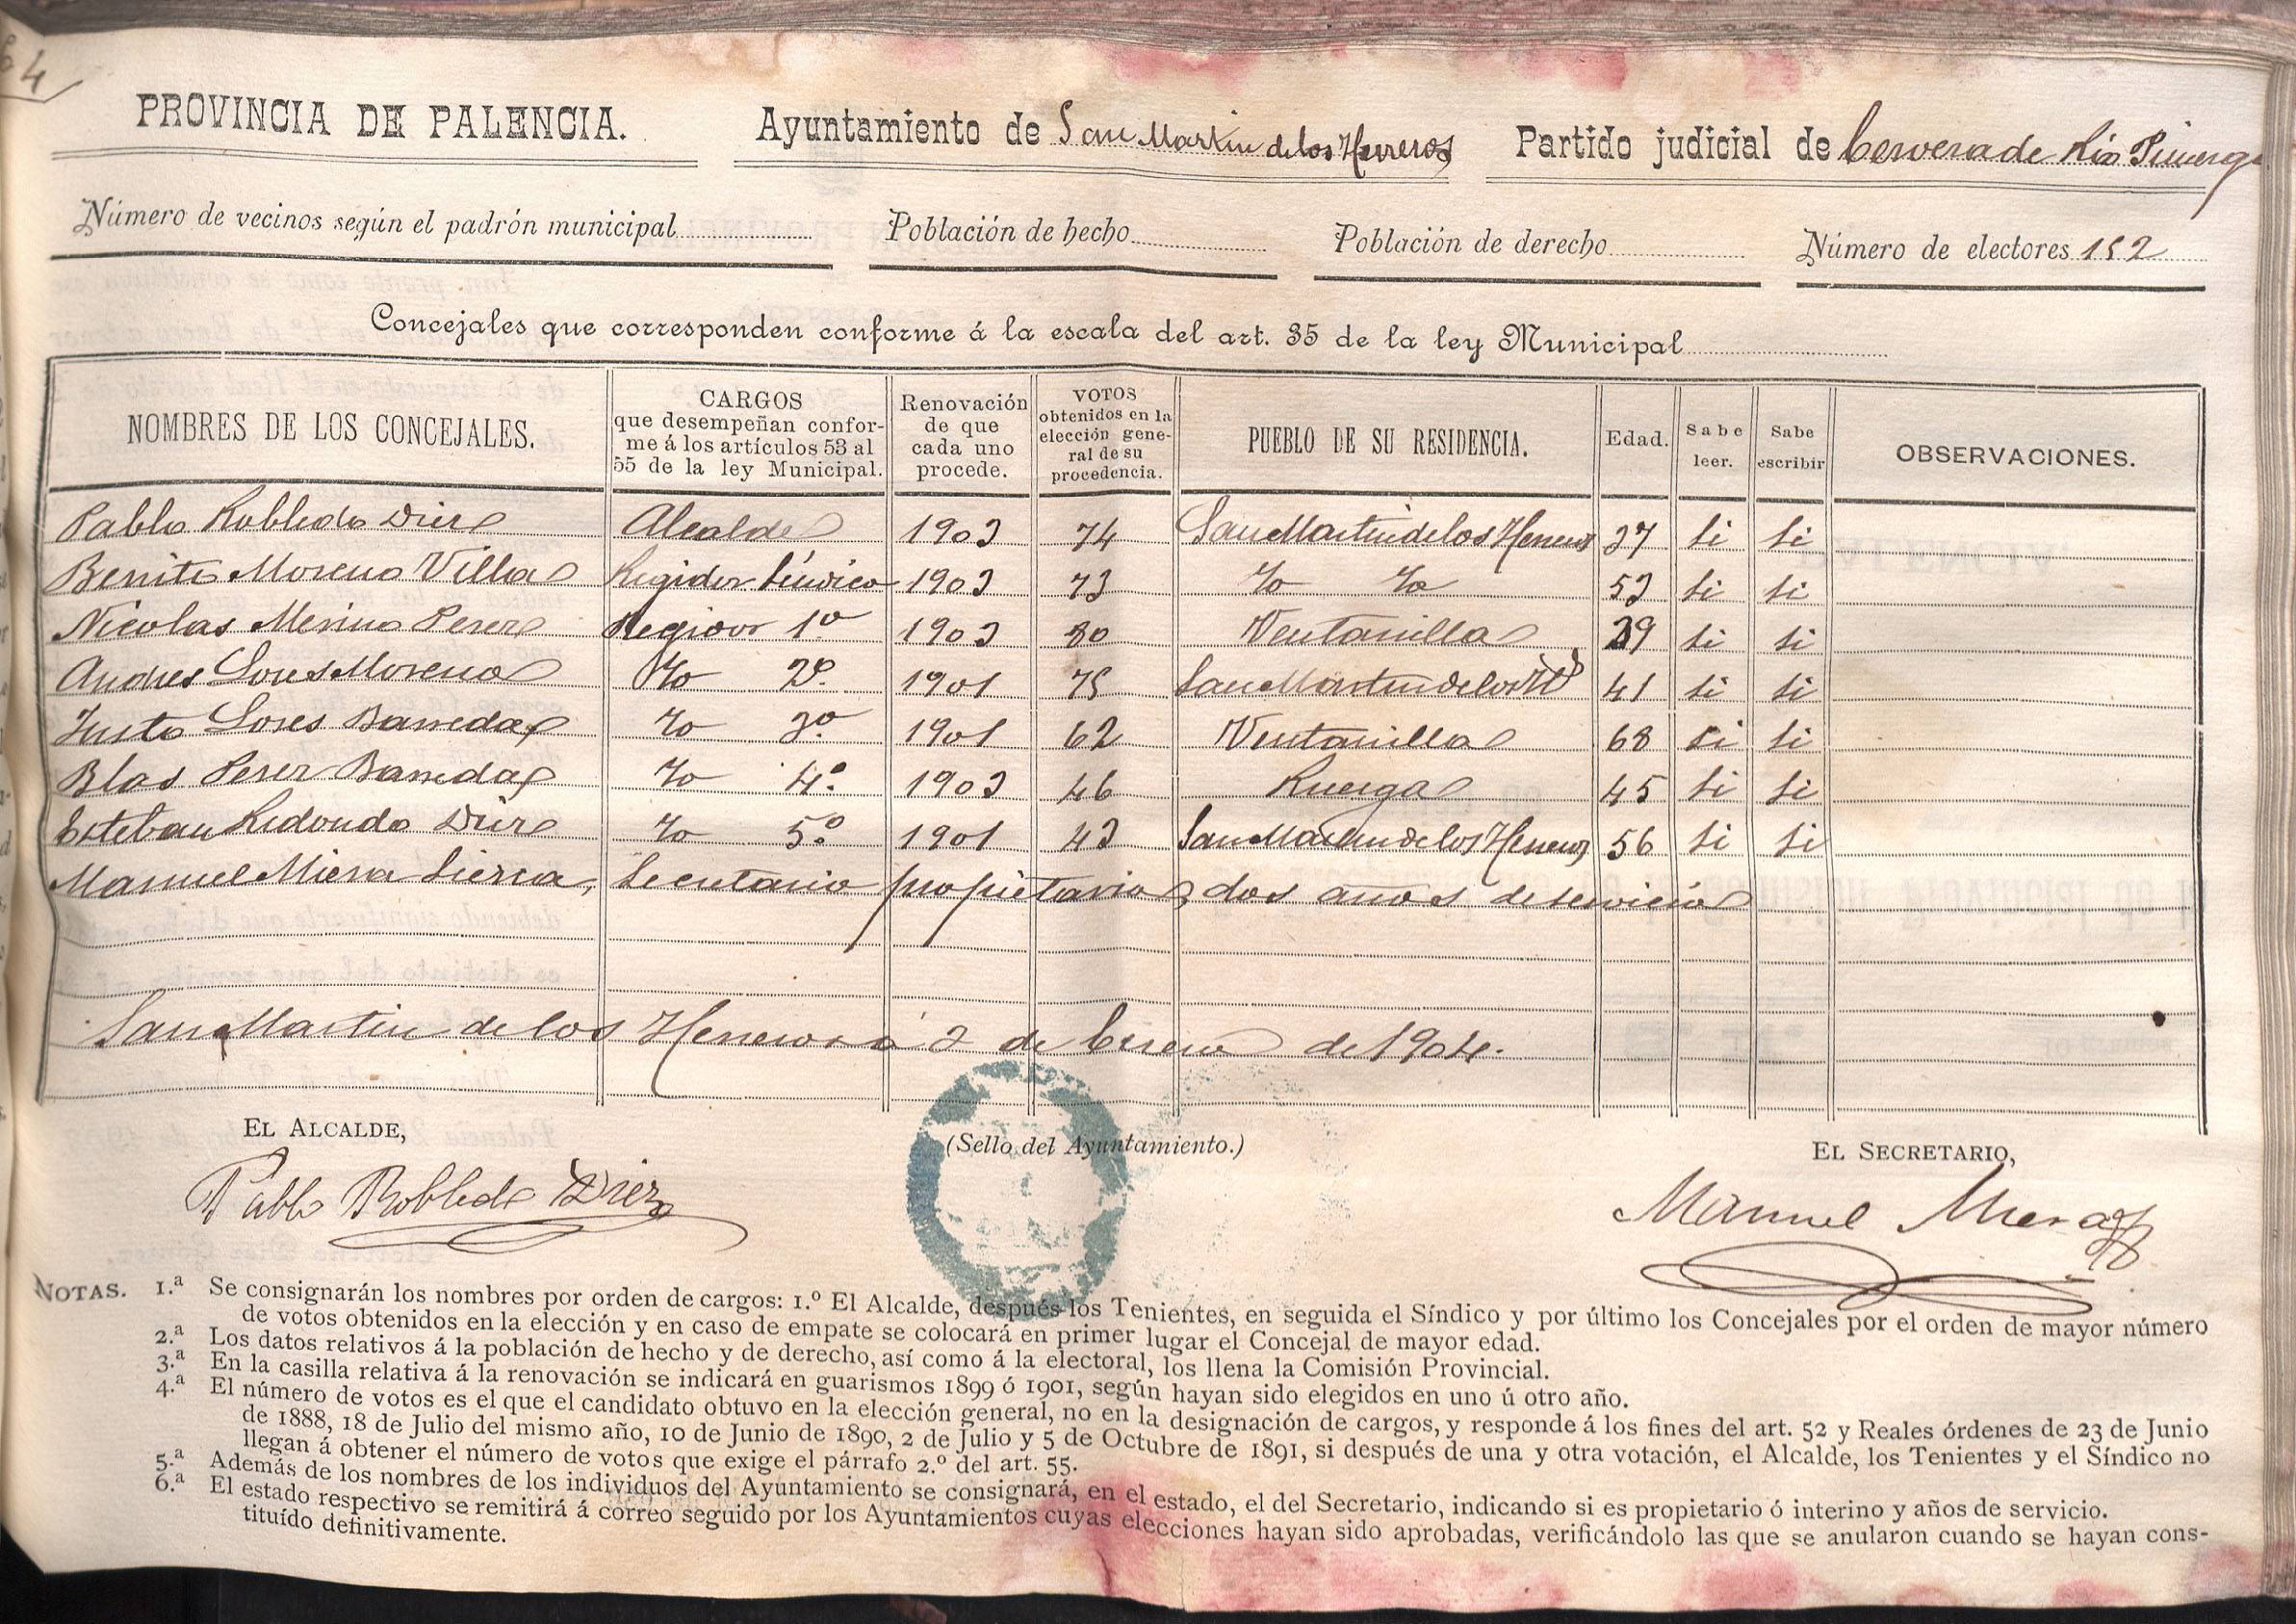 64
PROVINCIA DE PALENCIA. Ayuntamiento de San Martin de los Herreros Partido judicial de Cervera de Rio Pisuerga
Número de vecinos según el padrón municipal Población de hecho Población de derecho Número de electores 152
Concejales que corresponden conforme á la escala del art. 35 de la ley Municipal
NOMBRES DE LOS CONCEJALES. CARGOS que desempeñan conforme á los artículos 53 al 55 de la ley Municipal. Renovación de que cada uno procede. VOTOS obtenidos en la elección general de su procedencia. PUEBLO DE SU RESIDENCIA. Edad. Sabe leer. Sabe escribir OBSERVACIONES.
Pablo Robledo Diez Alcalde 1903 74 San Martin de los Herreros 37 si si
Benito Moreno Villa Regidor Síndico 1903 73 Yo Yo 53 si si
Nicolas Merino Perez Regidor 1º 1903 80 Ventanilla 39 si si
Andres Lores Moreno Yo 2º 1901 75 San Martin de los Hs 41 si si
Justo Lores Barreda Yo 3º 1901 62 Ventanilla 68 si si
Blas Perez Barreda Yo 4º 1903 46 Ruesga 45 si si
Esteban Redondo Diez Yo 5º 1901 43 San Martin de los Herreros 56 si si
Manuel Miera Sierra, Secretario propietario, dos años de servicio
San Martin de los Herreros á 2 de Enero de 1904.
EL ALCALDE, (Sello del Ayuntamiento.) EL SECRETARIO,
Pablo Robledo Diez Manuel Miera
NOTAS. 1.ª Se consignarán los nombres por orden de cargos: 1.º El Alcalde, después los Tenientes, en seguida el Síndico y por último los Concejales por el orden de mayor número
de votos obtenidos en la elección y en caso de empate se colocará en primer lugar el Concejal de mayor edad.
2.ª Los datos relativos á la población de hecho y de derecho, así como á la electoral, los llena la Comisión Provincial.
3.ª En la casilla relativa á la renovación se indicará en guarismos 1899 ó 1901, según hayan sido elegidos en uno ú otro año.
4.ª El número de votos es el que el candidato obtuvo en la elección general, no en la designación de cargos, y responde á los fines del art. 52 y Reales órdenes de 23 de Junio
de 1888, 18 de Julio del mismo año, 10 de Junio de 1890, 2 de Julio y 5 de Octubre de 1891, si después de una y otra votación, el Alcalde, los Tenientes y el Síndico no
llegan á obtener el número de votos que exige el párrafo 2.º del art. 55.
5.ª Además de los nombres de los individuos del Ayuntamiento se consignará, en el estado, el del Secretario, indicando si es propietario ó interino y años de servicio.
6.ª El estado respectivo se remitirá á correo seguido por los Ayuntamientos cuyas elecciones hayan sido aprobadas, verificándolo las que se anularon cuando se hayan cons-
tituído definitivamente.